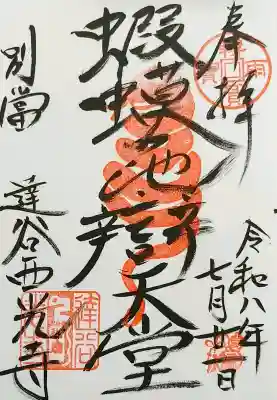 奉拝
蝦蟆池辯天堂
令和八年
七月廿一日
別當
達谷西光寺